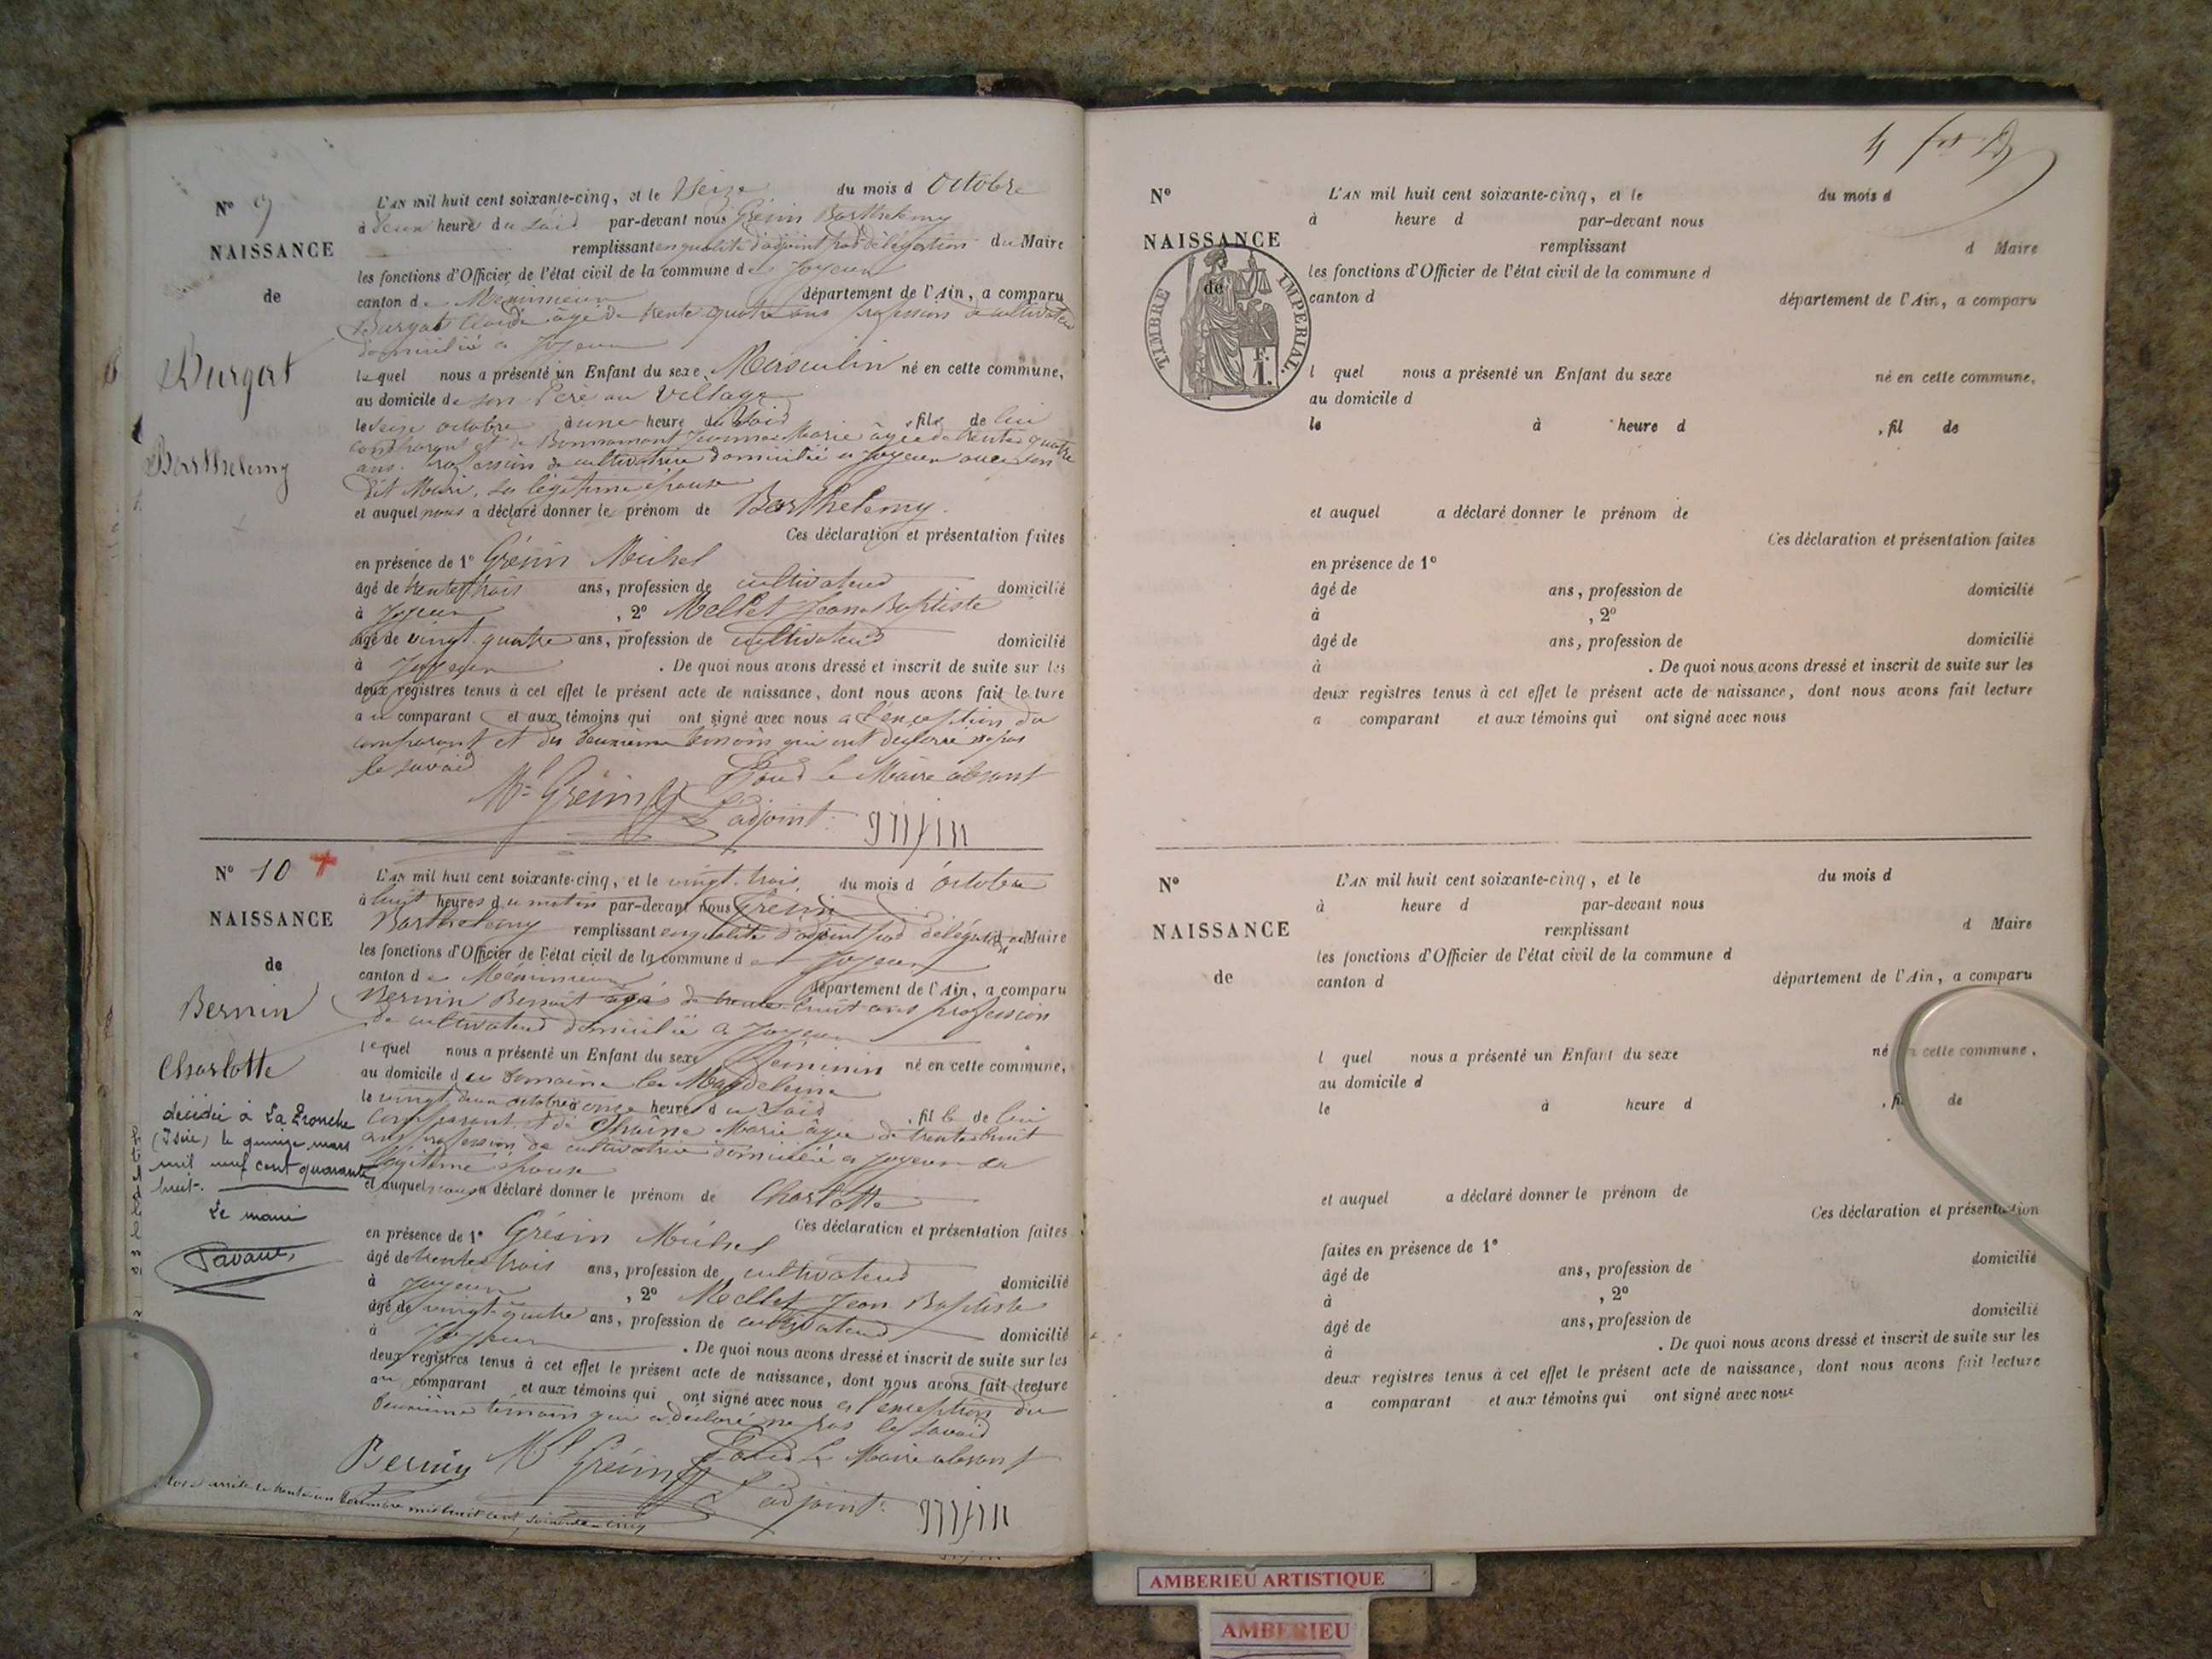 N° 9
NAISSANCE
de
Burgat
Barthelemy
L'AN mil huit cent soixante-cinq, et le Seize du mois d Octobre
à deux heure du soir par-devant nous Grésin Barthelemy
remplissant en qualité d'adjoint par délégation du Maire
les fonctions d'Officier de l'état civil de la commune de Joyeux
canton de Meximieux département de l'Ain, a comparu
Burgat Claude âgé de trente quatre ans profession de cultivateur
domicilié a Joyeux
lequel nous a présenté un Enfant du sexe Masculin né en cette commune,
au domicile de son Père au Village
le seize octobre à une heure du soir , fils de lui
comparant et de Bonnamont Jeanne Marie âgée de trente quatre
ans profession de cultivatrice domicilié a Joyeux avec son
dit Mari, sa légitime épouse
et auquel nous a déclaré donner le prénom de Barthelemy.
Ces déclaration et présentation faites
en présence de 1° Grésin Michel
âgé de trente trois ans, profession de cultivateur domicilié
à Joyeux , 2° Mellet Jean Baptiste
âgé de vingt quatre ans, profession de cultivateur domicilié
à Joyeux . De quoi nous avons dressé et inscrit de suite sur les
deux registres tenus à cet effet le présent acte de naissance, dont nous avons fait lecture
au comparant et aux témoins qui ont signé avec nous a l'exception du
comparant et du deuxième témoin qui ont declaré ne pas
le savoir
Pour le Maire absent
Ml Grésin L'adjoint grésin
N° 10 +
NAISSANCE
de
Bernin
Charlotte
décédée à La Tronche
(Isère) le quinze mars
mil neuf cent quarante
huit.
Le maire
L'AN mil huit cent soixante-cinq, et le vingt trois du mois d Octobre
à huit heures du matin par-devant nous Grésin
Barthelemy remplissant en qualité d'adjoint par délégation du Maire
les fonctions d'Officier de l'état civil de la commune de Joyeux
canton de Meximieux département de l'Ain, a comparu
Bernin Benoit âgé de trente huit ans profession
de cultivateur domicilié a Joyeux
lequel nous a présenté un Enfant du sexe Féminin né en cette commune,
au domicile du Domaine la Magdeleine
le vingt deux octobre à onze heures du soir , fille de lui
comparant et de Marie âgée de trente huit
ans profession de cultivatrice domicilié a Joyeux sa
légitime épouse
et auquel nous a déclaré donner le prénom de Charlotte
Ces déclaration et présentation faites
en présence de 1° Grésin Michel
âgé de trente trois ans, profession de cultivateur domicilié
à Joyeux , 2° Mellet Jean Baptiste
âgé de vingt quatre ans, profession de cultivateur domicilié
à Joyeux . De quoi nous avons dressé et inscrit de suite sur les
deux registres tenus à cet effet le présent acte de naissance, dont nous avons fait lecture
au comparant et aux témoins qui ont signé avec nous a l'exception du
deuxième témoin qui a déclaré ne pas le savoir
Pour le Maire absent
Bernin Ml Grésin L'adjoint grésin
arrêté le trente un décembre mil huit cent soixante cinq
4
N°
NAISSANCE
de
TIMBRE IMPERIAL.
1 F.
L'AN mil huit cent soixante-cinq, et le du mois d
à heure d par-devant nous
remplissant d Maire
les fonctions d'Officier de l'état civil de la commune d
canton d département de l'Ain, a comparu
l quel nous a présenté un Enfant du sexe né en cette commune,
au domicile d
le à heure d , fil de
et auquel a déclaré donner le prénom de
Ces déclaration et présentation faites
en présence de 1°
âgé de ans, profession de domicilié
à , 2°
âgé de ans, profession de domicilié
à . De quoi nous avons dressé et inscrit de suite sur les
deux registres tenus à cet effet le présent acte de naissance, dont nous avons fait lecture
a comparant et aux témoins qui ont signé avec nous
N°
NAISSANCE
de
L'AN mil huit cent soixante-cinq, et le du mois d
à heure d par-devant nous
remplissant d Maire
les fonctions d'Officier de l'état civil de la commune d
canton d département de l'Ain, a comparu
l quel nous a présenté un Enfant du sexe né en cette commune,
au domicile d
le à heure d , fil de
et auquel a déclaré donner le prénom de
Ces déclaration et présentation
faites en présence de 1°
âgé de ans, profession de domicilié
à , 2°
âgé de ans, profession de domicilié
à . De quoi nous avons dressé et inscrit de suite sur les
deux registres tenus à cet effet le présent acte de naissance, dont nous avons fait lecture
a comparant et aux témoins qui ont signé avec nous
AMBERIEU ARTISTIQUE
AMBERIEU